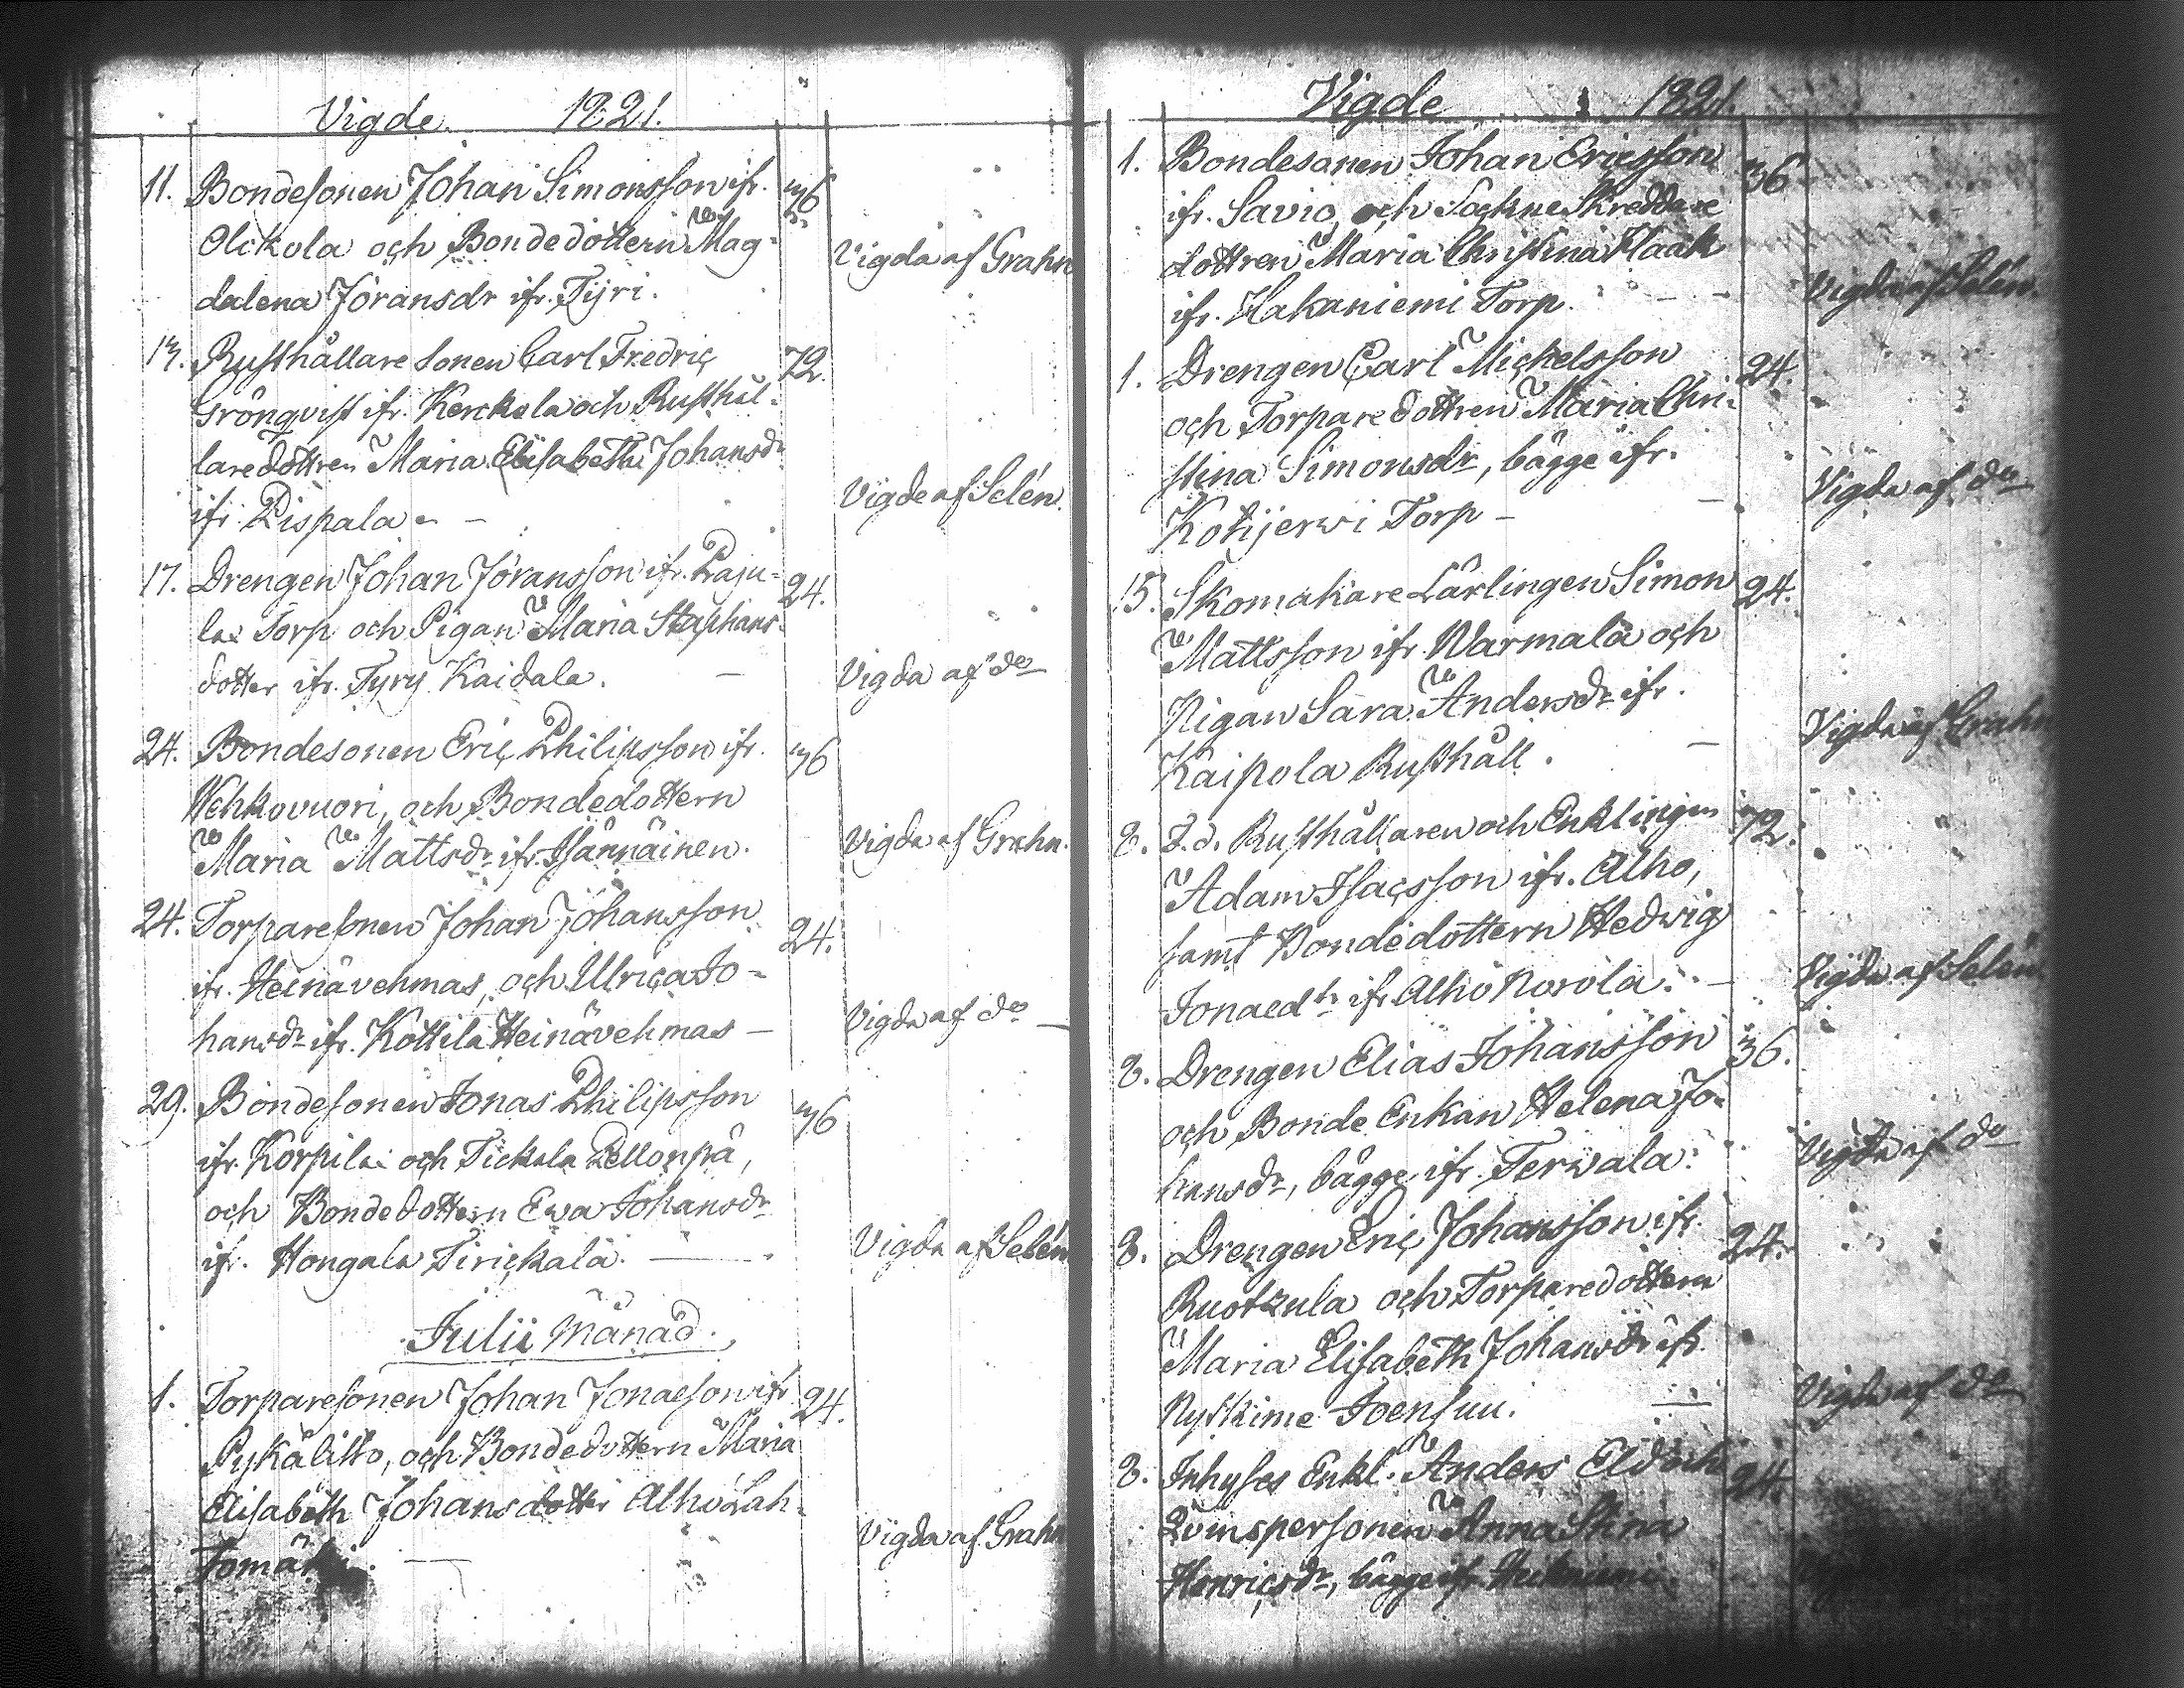 Vigde 1821.
11. Bondesonen Johan Simonsson ifr. 36
Olckola och Bondedottern Mag-
dalena Jöransdr ifr. Tyri. Vigda af Grahn
13. Rusthållare sonen Carl Fredric 72.
Grönqvist ifr. Kerckola och Rusthål-
laredottren Maria Elisabeth Johansdr
ifr. Pispala. - Vigde af Selén.
17. Drengen Johan Jöransson ifr. Paju- 24.
la Torp och Pigan Maria Staphans-
dotter ifr. Tyry Kaidala. Vigda af do
24. Bondesonen Eric Philipsson ifr. 36
Wehkovuori, och Bondedottern
Maria Mattsdr ifr. Isännäinen. Vigda af Grahn.
24. Torparesonen Johan Johansson 24.
ifr. Heinävehmas, och Ulrica Jo-
hansdr ifr. Kottila Heinävehmas - Vigda af do
29. Bondesonen Jonas Philipsson 36
ifr. Korpila och Tickala Pellonpä,
och Bondedottern Ewa Johansdr
ifr. Hongala Tirickala. Vigda af Selén
Julii Månad.
1. Torparesonen Johan Jonaeson ifr 24.
Pykälistö, och Bondedottern Maria
Elisabeth Johansdotter Alho Lah-
Vigda af Grahn
Vigde 1821.
1. Bondesonen Johan Ericsson 36
ifr. Savio, och Sockne Skreddare
dottren Maria Christina Haak
ifr. Hakaniemi Torp. Vigda af Selén.
1. Drengen Carl Mickelsson 24.
och Torpare dottren Maria Chri-
stina Simonsdr, bägge ifr.
Kotijerwi Torp - Vigda af do
15. Skomakare Lärlingen Simon 24.
Mattsson ifr. Warmala och
Pigan Sara Andersdr ifr.
Kaipola Rusthåll. Vigda af Grahn
8. F.d. Rusthållaren och Enklingen 72.
Adam Isacsson ifr. Alho,
samt Bondedottern Hedwig
Jonaedtr ifr. Alho Norola. Vigda af Selén
8. Drengen Elias Johansson 36.
och Bonde Enkan Helena Jo-
hansdr, bägge ifr. Terwala. Vigda af do
8. Drengen Eric Johansson ifr. 24.
Ruotzula och Torparedottern
Maria Elisabeth Johansdr ifr.
Joensuu. Vigda af do
8. Inhyses Enkl. Anders Eld och 24.
Qvinspersonen Anna Stina
Henricsdr, bägge ifr.